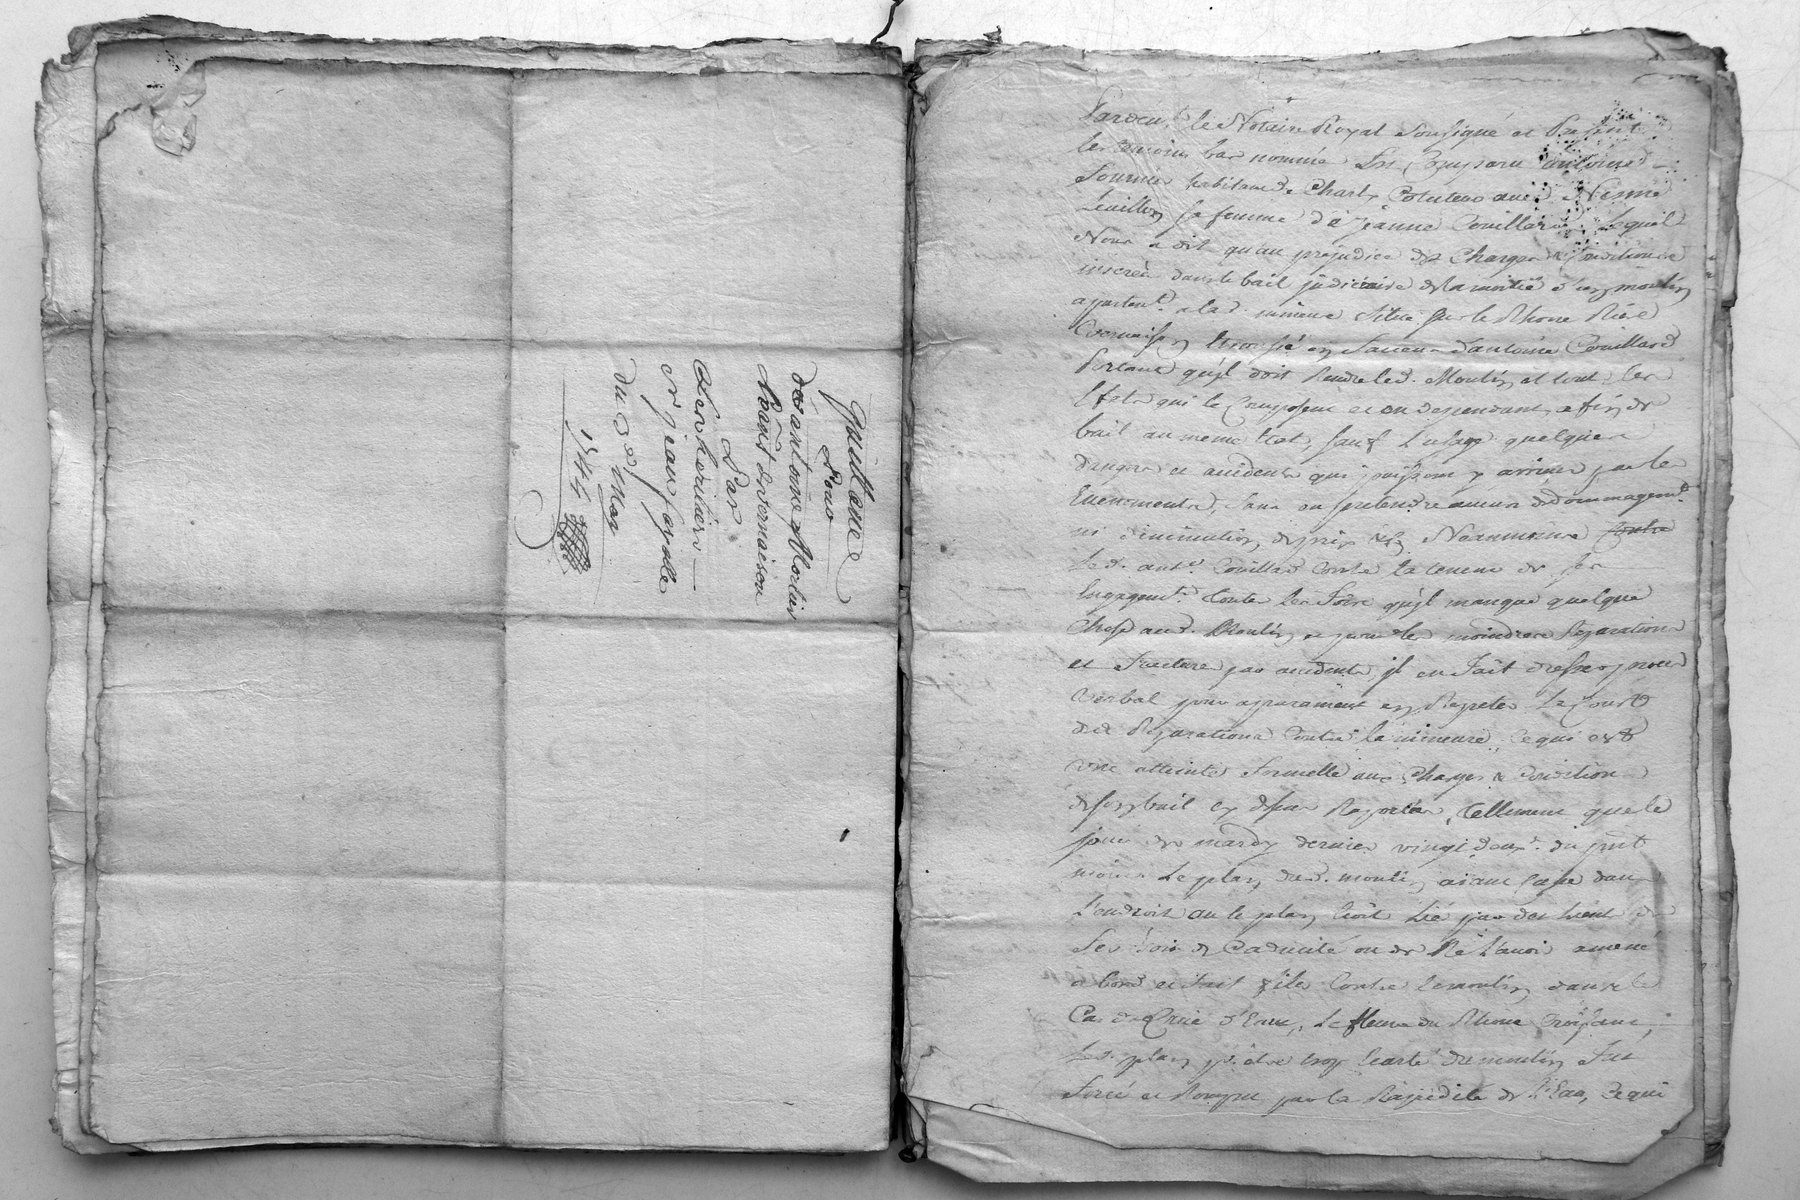 Quittance
Pour
antoine Mortier
de vernaison
Par
Les heritiers
Sr jean fayolle
du 2e May
1744
Pardev.t le Notaire Royal Soussigné et Present
les temoins bas nommés
fournier habitant de Charly
sa femme d'e jeanne Couillard Lequel
Nous a dit qu'au prejudice des Charges & Conditions
inserées dans le bail judiciaire de la moitié d'un moulin
apartent. a lad. mineure Situé Sur le Rhone Riere
Vernaison en faveur d'antoine Couillard
Portant qu'jl doit Rendre led. Moulin et tout les
qui le Composent et en dependant, a fin de
bail au meme Etat, sauf L'usage quelques
dangers et accidents qui puissent y arriver par les
Evenements, Sans en pretendre aucun dedommagemt.
ni diminution de prix Neanmoins contre
Led. ant.e Couillard Contre la teneur de ses
Engagemt. toute les Fois qu'jl manque quelque
Chose aud. Moulin et pour les moindres Reparations
et fracture par accidents jl en fait dresser proces
Verbal pour aparament en Repeter Le Cours
des Reparations Contre la mineure, Ce qui est
une atteinte formelle aux Charges & Conditions
de son bail cy dessus Raporter, tellement que le
jour de mardy dernier vingt deux. du prnt
mois Le plan dud. moulin aiant Cassé dans
L'endroit ou le plan étoit Lié par des Liens
de Caducité ou de ne L'avoir amené
a bord et fait filer Contre le moulin dans le
Cas de Crüe d'Eaux, Le fleuve du Rhone Croissant,
Led. plan p.r etre trop Ecarté du moulin fut
forcé et Rompu par la Rapidité de l'Eau, Ce qui